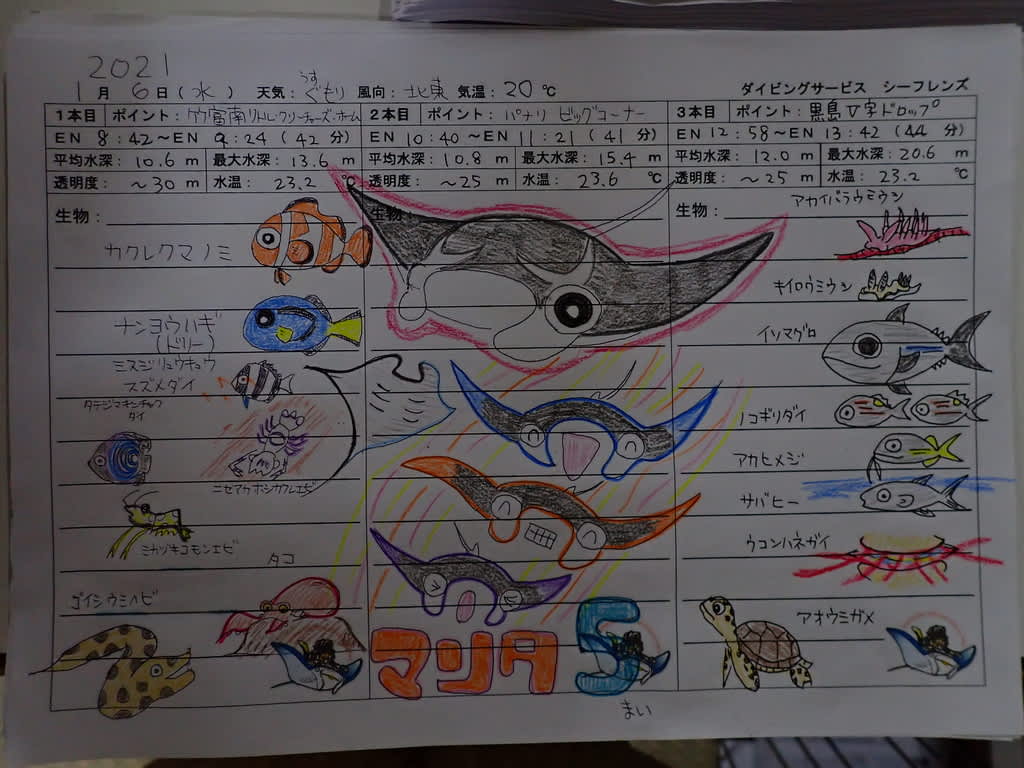 2021
1月 6日(水) 天気: うすぐもり 風向: 北東 気温: 20℃ ダイビングサービス シーフレンズ
1本目 ポイント: 竹富南リトルクリーチャーズ・ホーム
EN 8:42～EN 9:24 (42分)
平均水深: 10.6 m 最大水深: 13.6 m
透明度: ～30 m 水温: 23.2 ℃
生物:
カクレクマノミ
ナンヨウハギ
(ドリー)
ミスジリュウキュウ
スズメダイ
タテジマキンチャク
ダイ
ニセアカホシカクレエビ
ミカヅキコモンエビ
タコ
ゴイシウミヘビ
2本目 ポイント: パナリ ビッグコーナー
EN 10:40～EN 11:21 (41分)
平均水深: 10.8 m 最大水深: 15.4 m
透明度: ～25 m 水温: 23.6 ℃
生物:
マンタ 5
まい
3本目 ポイント: 黒島V字ドロップ
EN 12:58～EN 13:42 (44分)
平均水深: 12.0 m 最大水深: 20.6 m
透明度: ～25 m 水温: 23.2 ℃
生物:
アカイバラウミウシ
キイロウミウシ
イソマグロ
ノコギリダイ
アカヒメジ
サバヒー
ウコンハネガイ
アオウミガメ